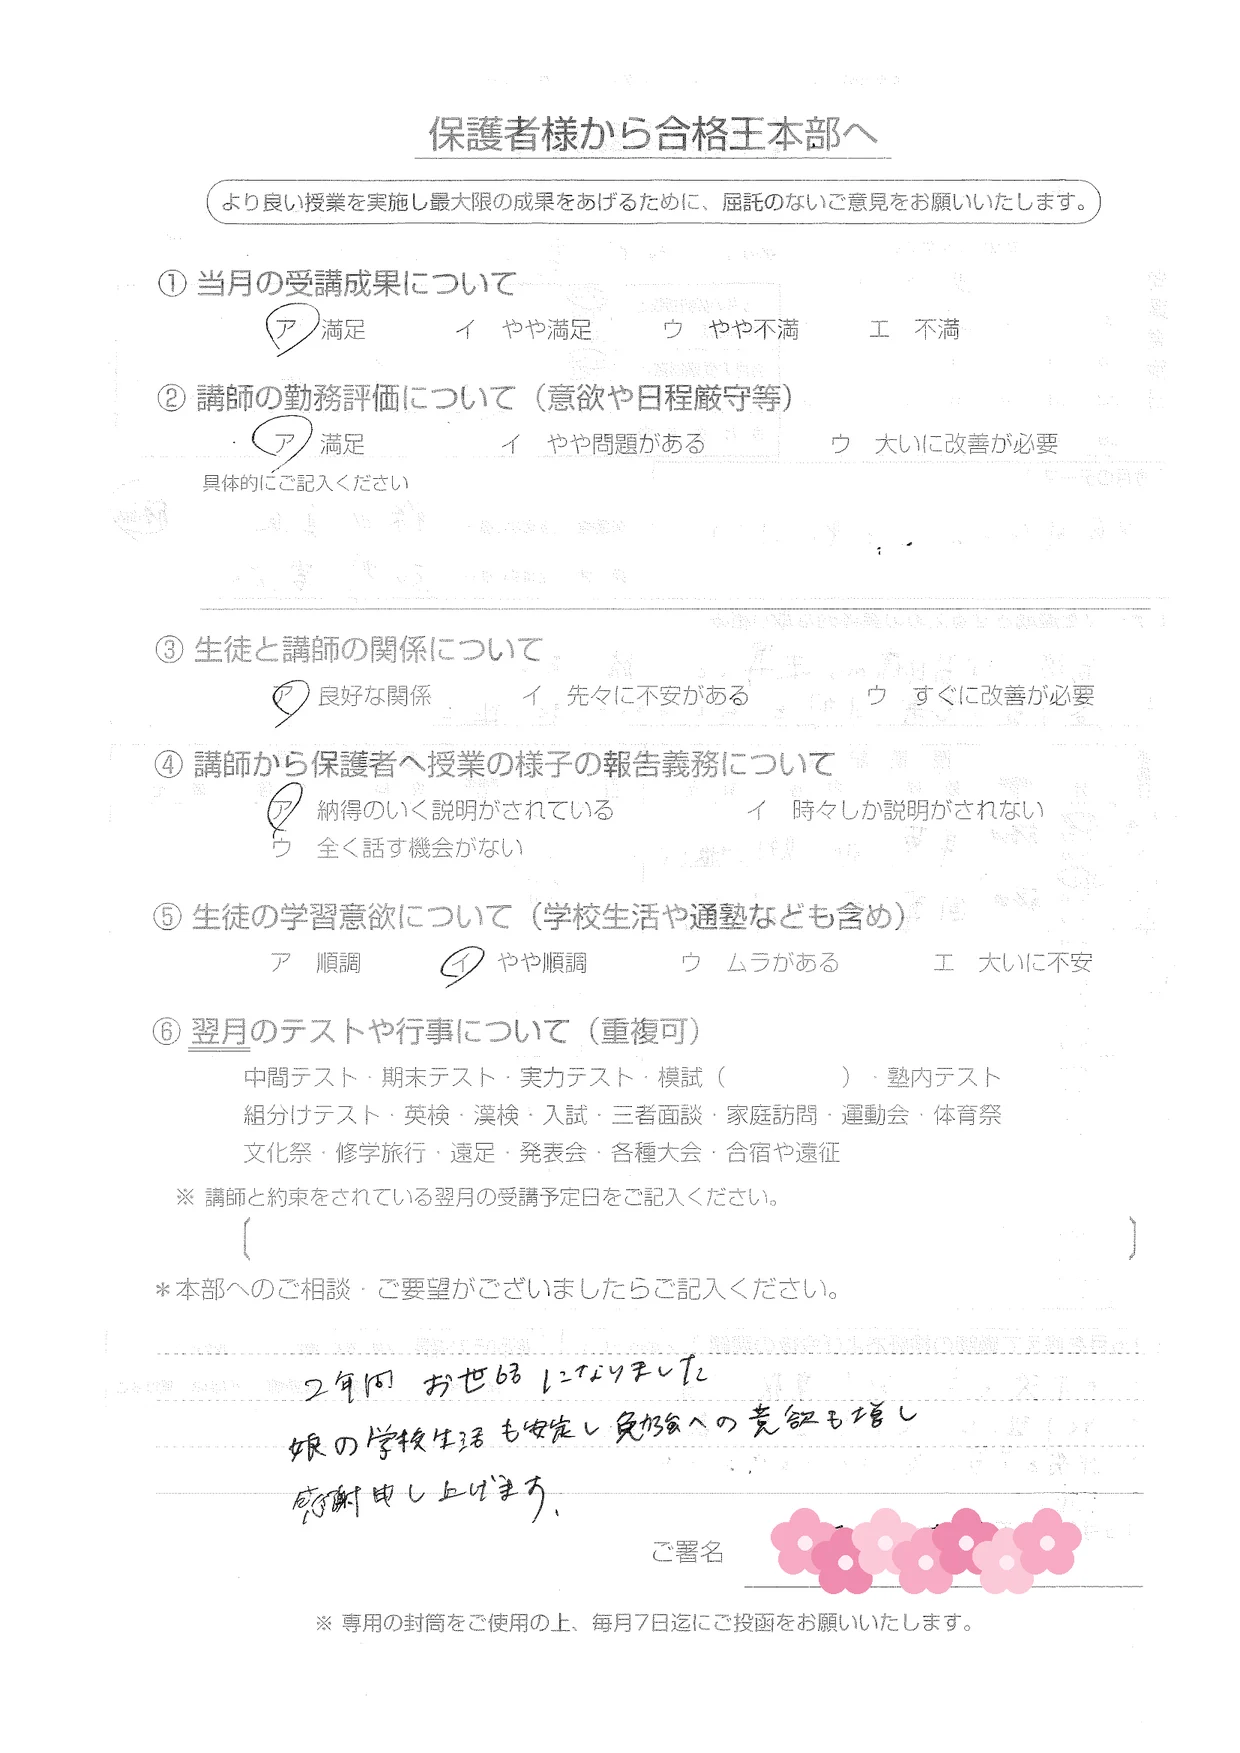 保護者様から合格王本部へ
より良い授業を実施し最大限の成果をあげるために、屈託のないご意見をお願いいたします。
① 当月の受講成果について
ア 満足 イ やや満足 ウ やや不満 エ 不満
② 講師の勤務評価について（意欲や日程厳守等）
ア 満足 イ やや問題がある ウ 大いに改善が必要
具体的にご記入ください
③ 生徒と講師の関係について
ア 良好な関係 イ 先々に不安がある ウ すぐに改善が必要
④ 講師から保護者へ授業の様子の報告義務について
ア 納得のいく説明がされている イ 時々しか説明がされない
ウ 全く話す機会がない
⑤ 生徒の学習意欲について（学校生活や通塾なども含め）
ア 順調 イ やや順調 ウ ムラがある エ 大いに不安
⑥ 翌月のテストや行事について（重複可）
中間テスト・期末テスト・実力テスト・模試（ ）・塾内テスト
組分けテスト・英検・漢検・入試・三者面談・家庭訪問・運動会・体育祭
文化祭・修学旅行・遠足・発表会・各種大会・合宿や遠征
※ 講師と約束をされている翌月の受講予定日をご記入ください。
＊本部へのご相談・ご要望がございましたらご記入ください。
2年間 お世話になりました
娘の学校生活も安定し勉強への意欲も増し
感謝申し上げます.
ご署名
※ 専用の封筒をご使用の上、毎月7日迄にご投函をお願いいたします。